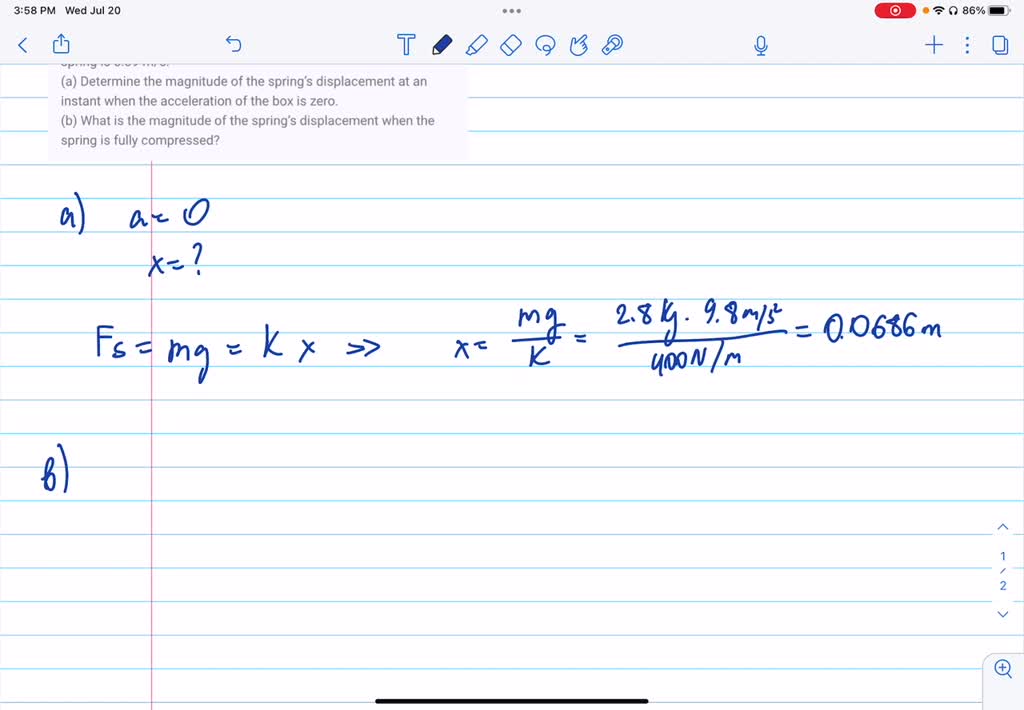 3:58 PM Wed Jul 20
86%
(a) Determine the magnitude of the spring's displacement at an
instant when the acceleration of the box is zero.
(b) What is the magnitude of the spring's displacement when the
spring is fully compressed?
a) a = 0
x = ?
Fs = mg = K x >> x = mg/K = 2.8 kg · 9.8 m/s² / 400 N/m = 0.0686 m
b)
1
/
2